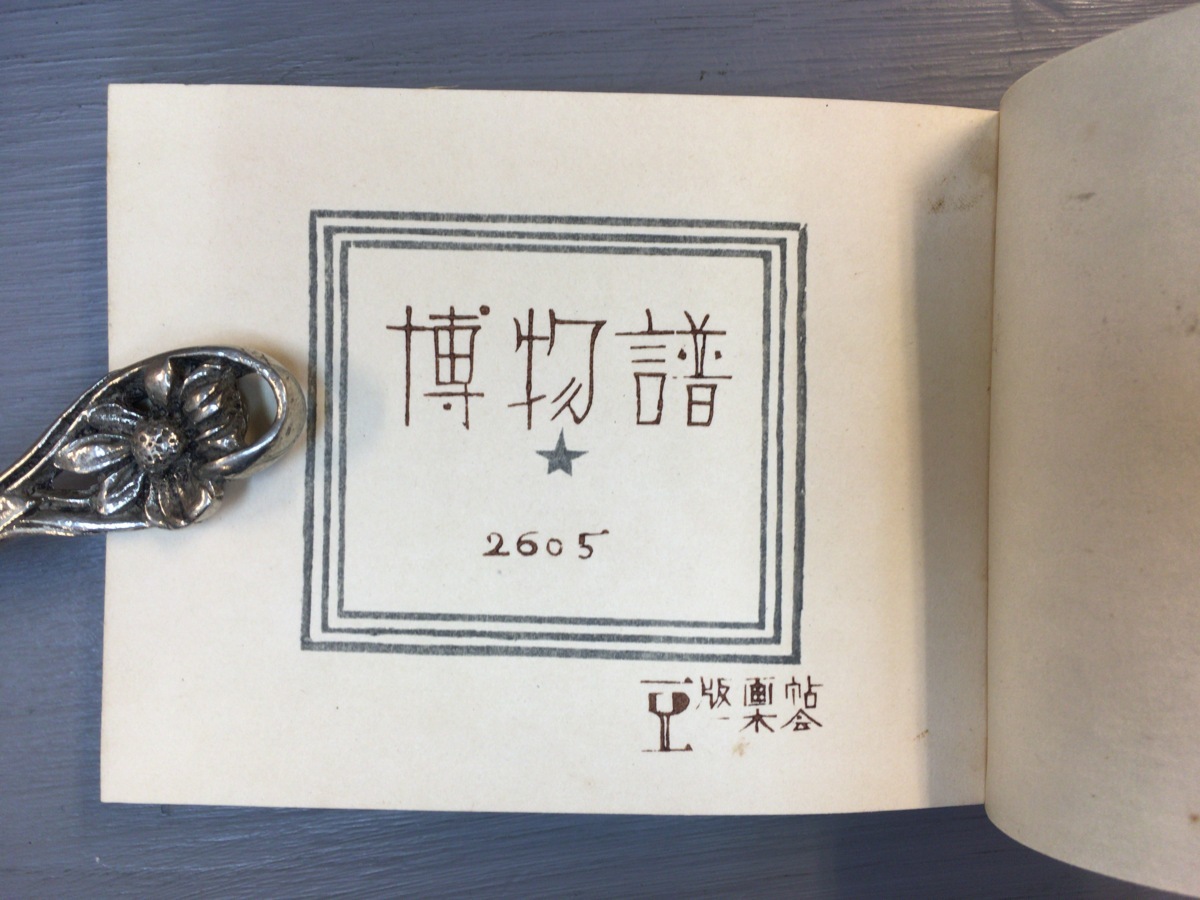 博物譜
2605
豆版画帖
一木会